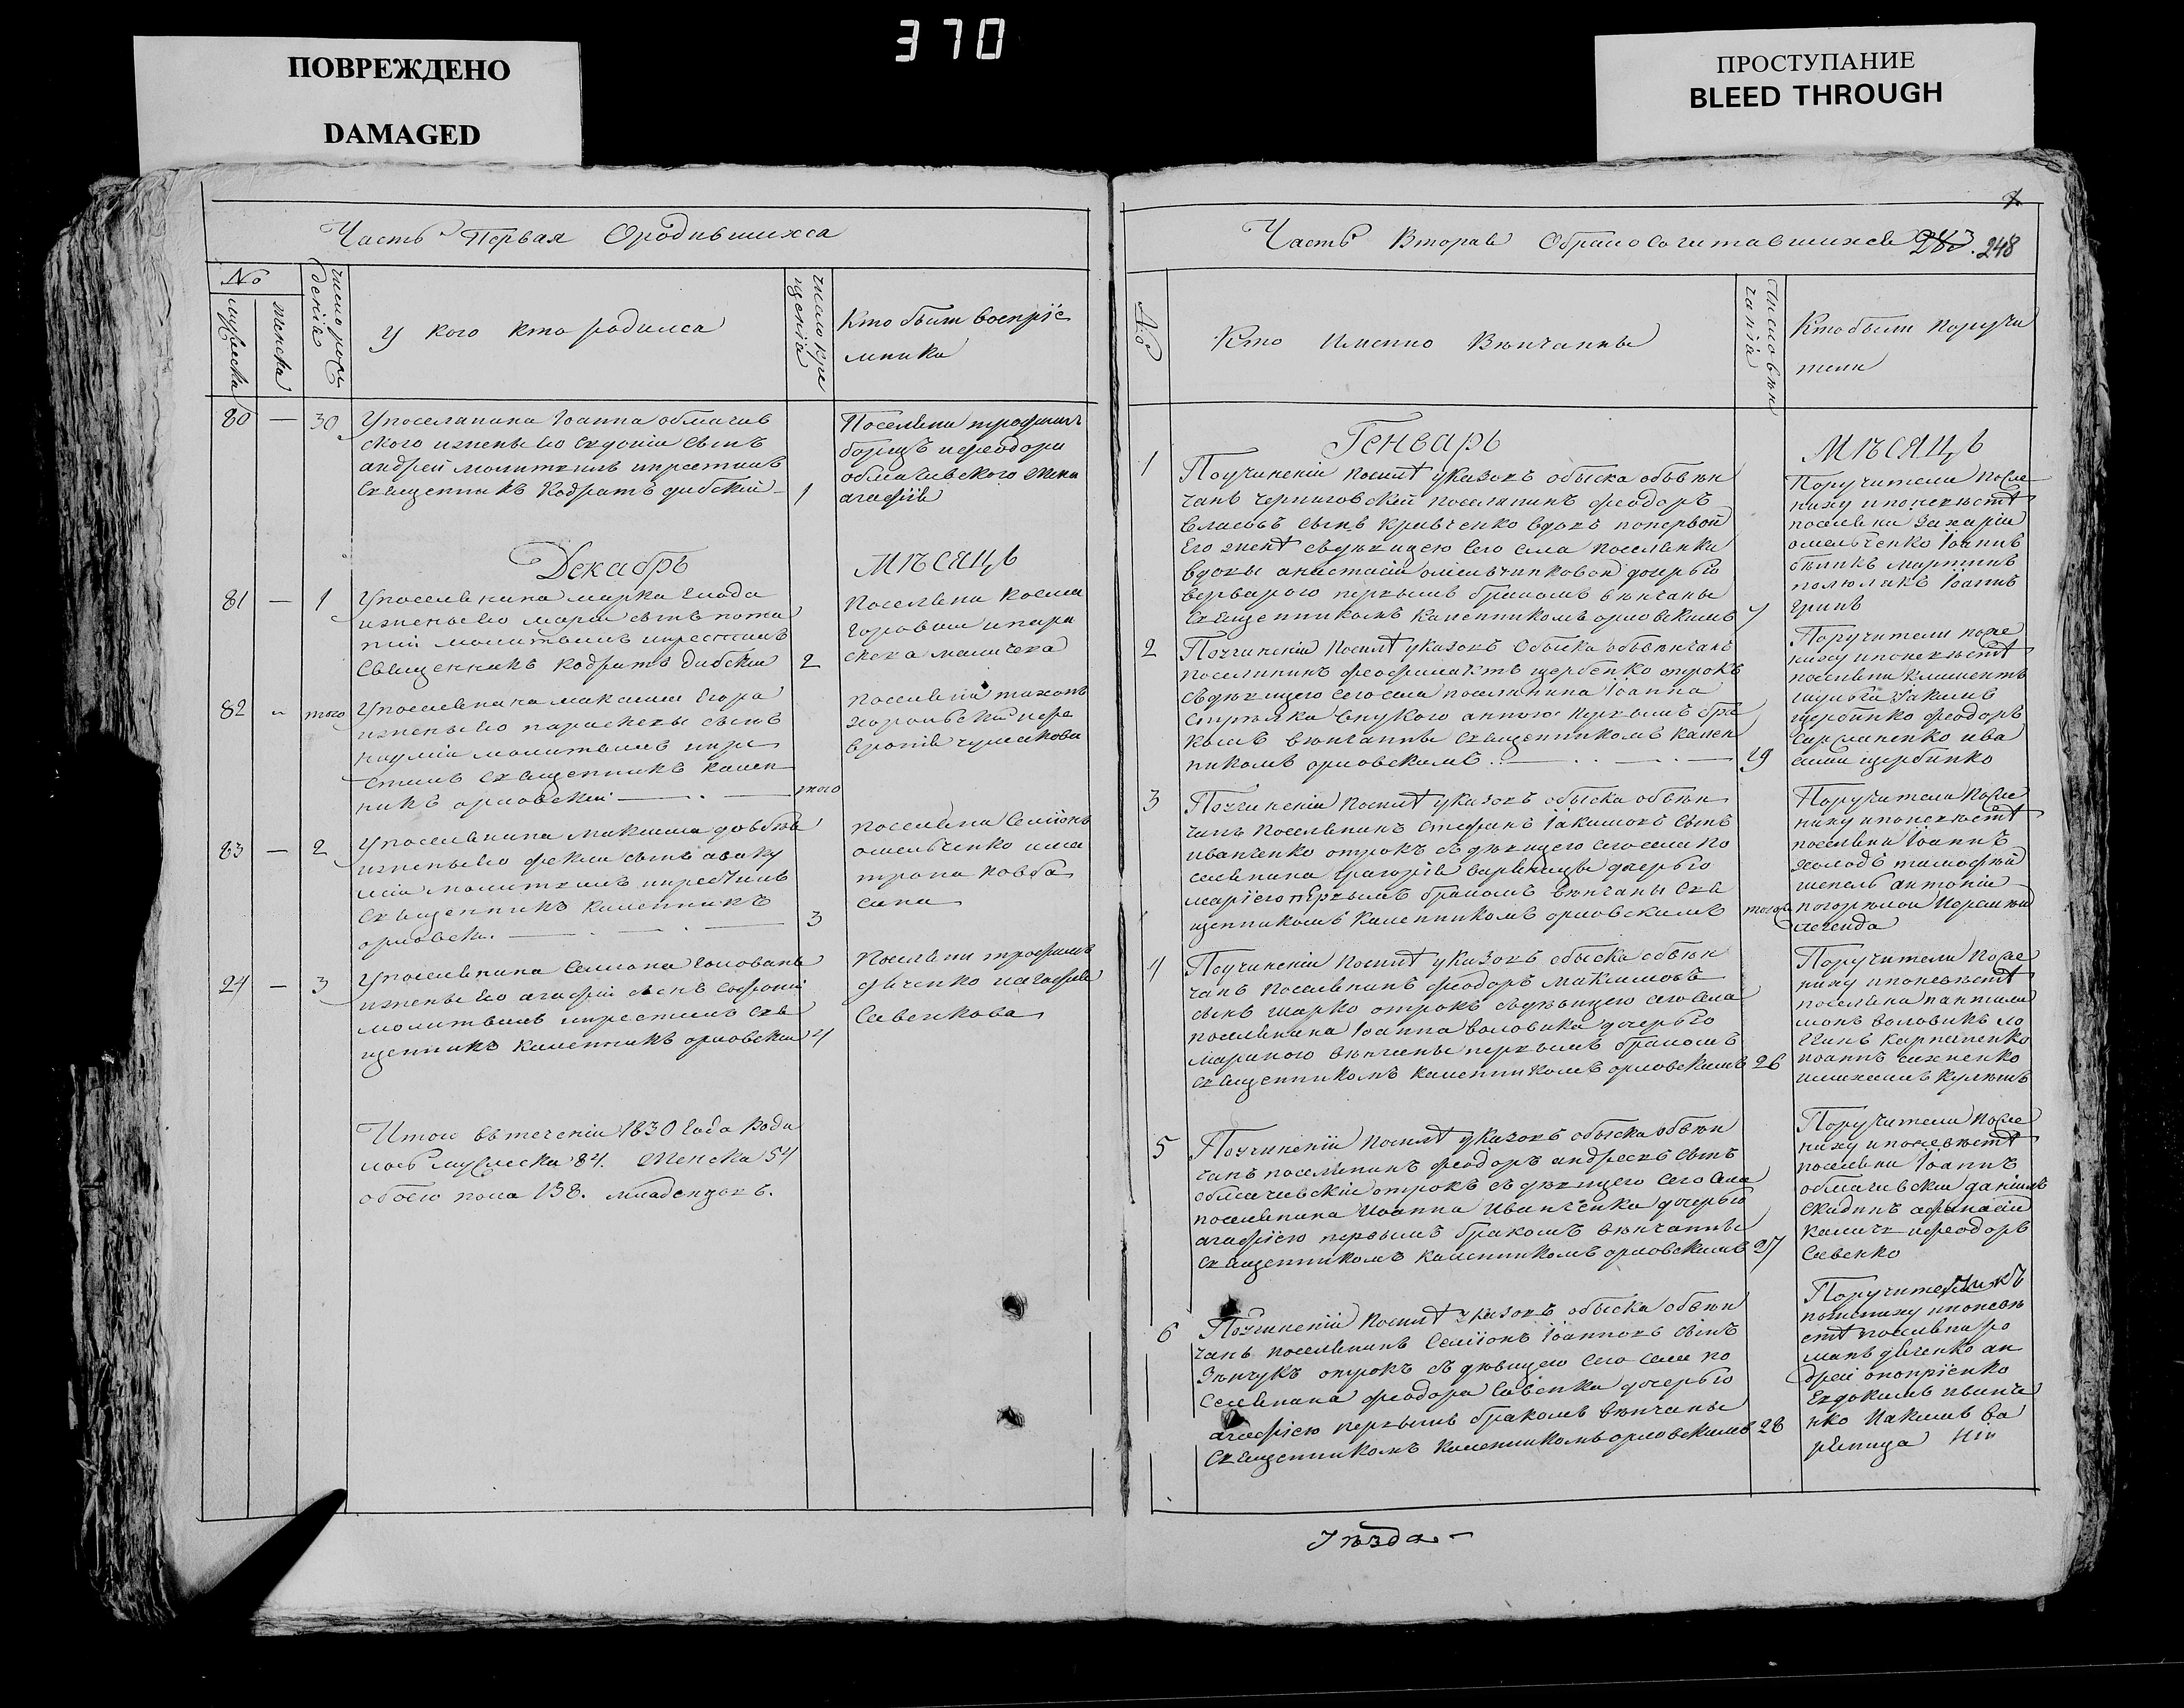 370
ПОВРЕЖДЕНО
DAMAGED
ПРОСТУПАНИЕ
BLEED THROUGH
Часть Первая Ородившихса
No
мужеска
женска
число рож
денія
у кого кто родился
число кре
щенія
Кто были воспріе
мники
80 — 30 Упоселянина Іоанна облачив
ского изжены его евдокіи сынъ
андрей молитвилъ икрестилъ
священникъ Кодратъ дибскій 1
Поселяни трофимъ
борецъ ифеодора
облачивского жена
агафія
Декабрь Мѣсяцъ
81 — 1 Упоселянина марка глода
изжены его марій сынъ пота
пій молитвилъ икрестилъ
Священникъ Кодратъ дибскій 2
поселяни козма
горовый ипара
скева
82 — того Упоселянина максима Егора
изжены его параскевы сынъ
наумій молитвилъ икре
стилъ священникъ камен
никъ орловскій того
поселяни тихонъ
ифе
вронія чумакова
83 — 2 Упоселянина Максима довбня
изжены его феклы сынъ аваку
мій молитвилъ икрестилъ
священникъ каменникъ
орловскій 3
поселяни Семіонъ
омельченко има
трона ковба
сина
24 — 3 Упоселянина Семіона голованя
изжены его агафіи сынъ софроній
молитвилъ икрестилъ свя
щенникъ каменникъ орловскій 4
Поселяни трофимъ
дяченко иагафія
Савенкова
Итого втеченіи 1830 года Роди
лось мужеска 84. Женска 54
обоего пола 138. младенцовъ.
7
Часть Вторая Обракосочитавшихся 283. 248
No
Кто Именно Вѣнчанны
Число вѣн
чанія
Кто были поручи
тели
Генварь Мѣсяцъ
1 Поучиненіи посилѣ указовъ обыска обвѣн
чанъ черниговскій поселянинъ феодоръ
власовъ сынъ Кривченко вдовъ попервой
Его женѣ свдовицею сего села поселянки
вдовы анастасіи омельчинковой дочерью
варварою первымъ бракомъ вѣнчаны
священникомъ каменникомъ орловскимъ 7
Поручители поже
ниху иноневѣстѣ
поселяни Захарій
омельченко Іоаннъ
мартинъ
Іоаннъ
гринь
2 Поучиненіи посилѣ указовъ обыска обвѣнчанъ
поселянинъ феофилактъ щербенко отрокъ
сдѣвицею сего села поселянина Іоанна
внукою анною первымъ бра
комъ вѣнчанны священникомъ камен
никомъ орловскимъ 19
Поручители поже
ниху иноневѣстѣ
поселяни климентъ
Іакимъ
щербинко феодоръ
ива
щербинко
3 Поучиненіи посилѣ указовъ обыска обвѣн
чанъ поселянинъ Стефанъ Іакимовъ сынъ
иванченко отрокъ сдѣвицею сего села по
селянина григорія вареницы дочерью
маріею первымъ бракомъ вѣнчаны свя
щенникомъ каменникомъ орловскимъ того
Поручители поже
ниху иноневѣстѣ
поселяни Іоаннъ
холодъ тимофей
шепель антоній
погорелой Иеремѣй
легенда
4 Поучиненіи посилѣ указовъ обыска обвѣн
чанъ поселянинъ феодоръ Максимовъ
сынъ шарко отрокъ сдѣвицею сего села
поселянина Іоанна воловика дочерью
мариною вѣнчаны первымъ бракомъ
священникомъ каменникомъ орловскимъ 26
Поручители поже
ниху иноневѣстѣ
поселяни пантели
монъ воловикъ ло
гинъ карпиненко
иоаннъ сахненко
имихаилъ кулешъ
5 Поучиненіи посилѣ указовъ обыска обвѣн
чанъ поселянинъ феодоръ андреевъ сынъ
облачивскій отрокъ сдѣвицею сего села
поселянина Иоанна Иванченка дочерью
агафіею первымъ бракомъ вѣнчанны
священникомъ каменникомъ орловскимъ 27
Поручители поже
ниху иноневѣстѣ
поселяни Іоаннъ
облачивскій даніилъ
скидинъ афанасій
калита ифеодоръ
Савенко
6 Поучиненіи посилѣ указовъ обыска обвѣн
чанъ поселянинъ Семіонъ Іоанновъ сынъ
Зѣнчукъ отрокъ сдѣвицею сего села по
селянина феодора Савенка дочерью
агафіею первымъ бракомъ вѣнчаны
священникомъ каменникомъ орловскимъ 28
Поручители
пожениху ипоневѣ
стѣ поселяни ро
манъ дяченко ан
дрей оноприенко
Евдокимъ иванче
нко Иакимъ ва
реница
Уѣзда